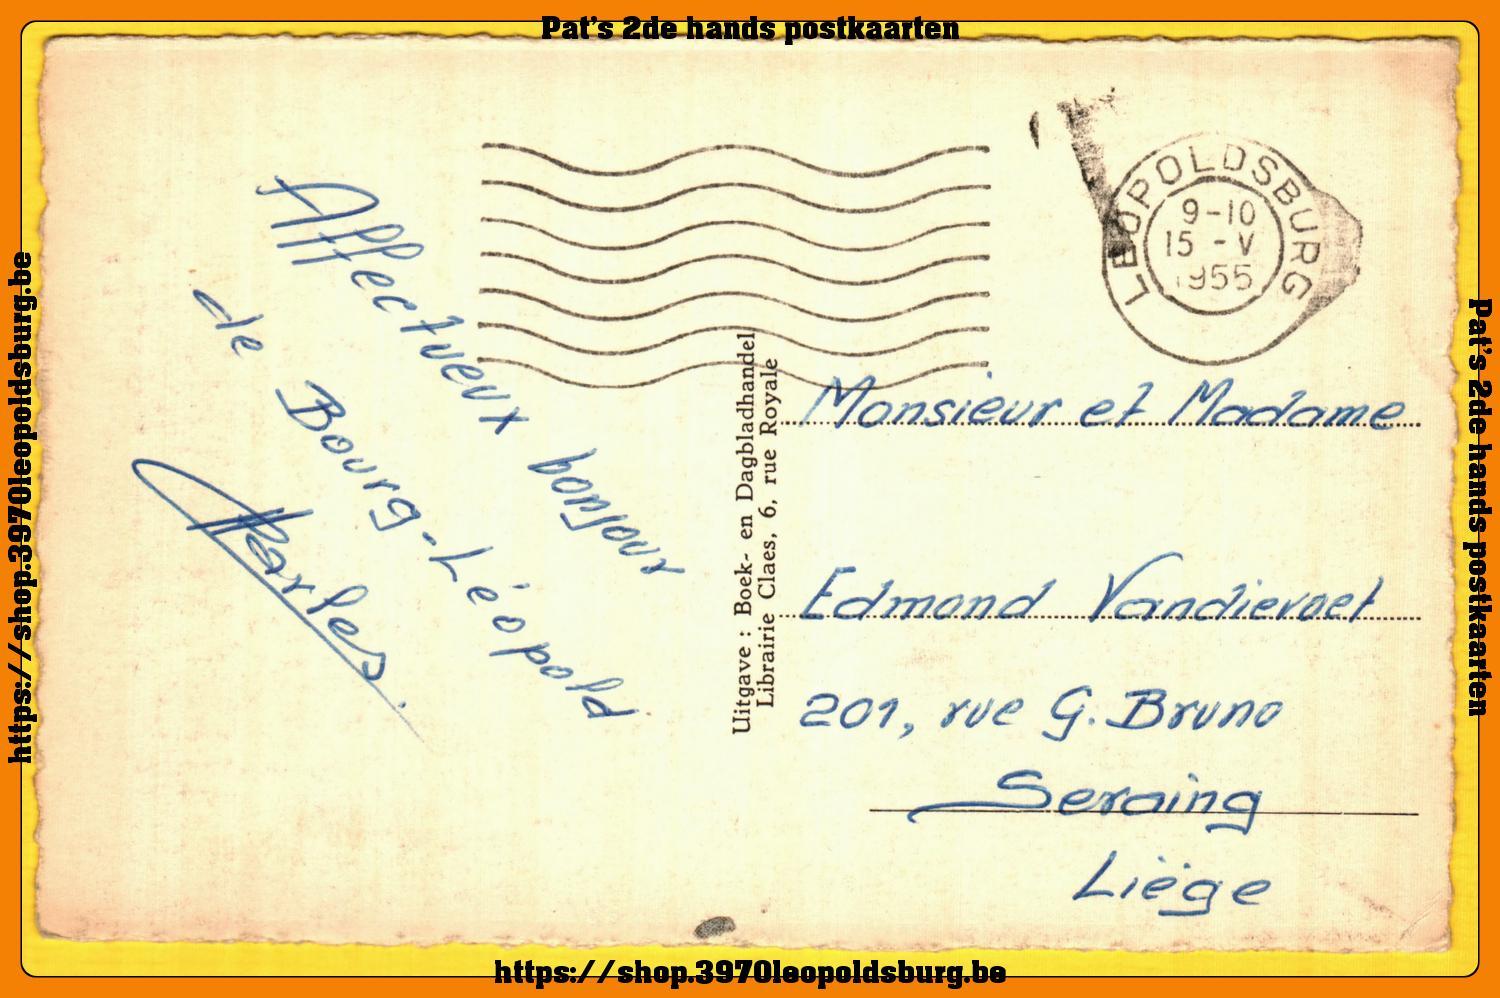 Pat's 2de hands postkaarten
https://shop.3970leopoldsburg.be
Affectueux bonjour
de Bourg-Léopold
Charles.
Uitgave : Boek- en Dagbladhandel
Librairie Claes, 6, rue Royale
LEOPOLDSBURG
9-10
15 - V
1955
Monsieur et Madame
Edmond Vandievoet
201, rue G. Bruno
Seraing
Liège
Pat's 2de hands postkaarten
https://shop.3970leopoldsburg.be